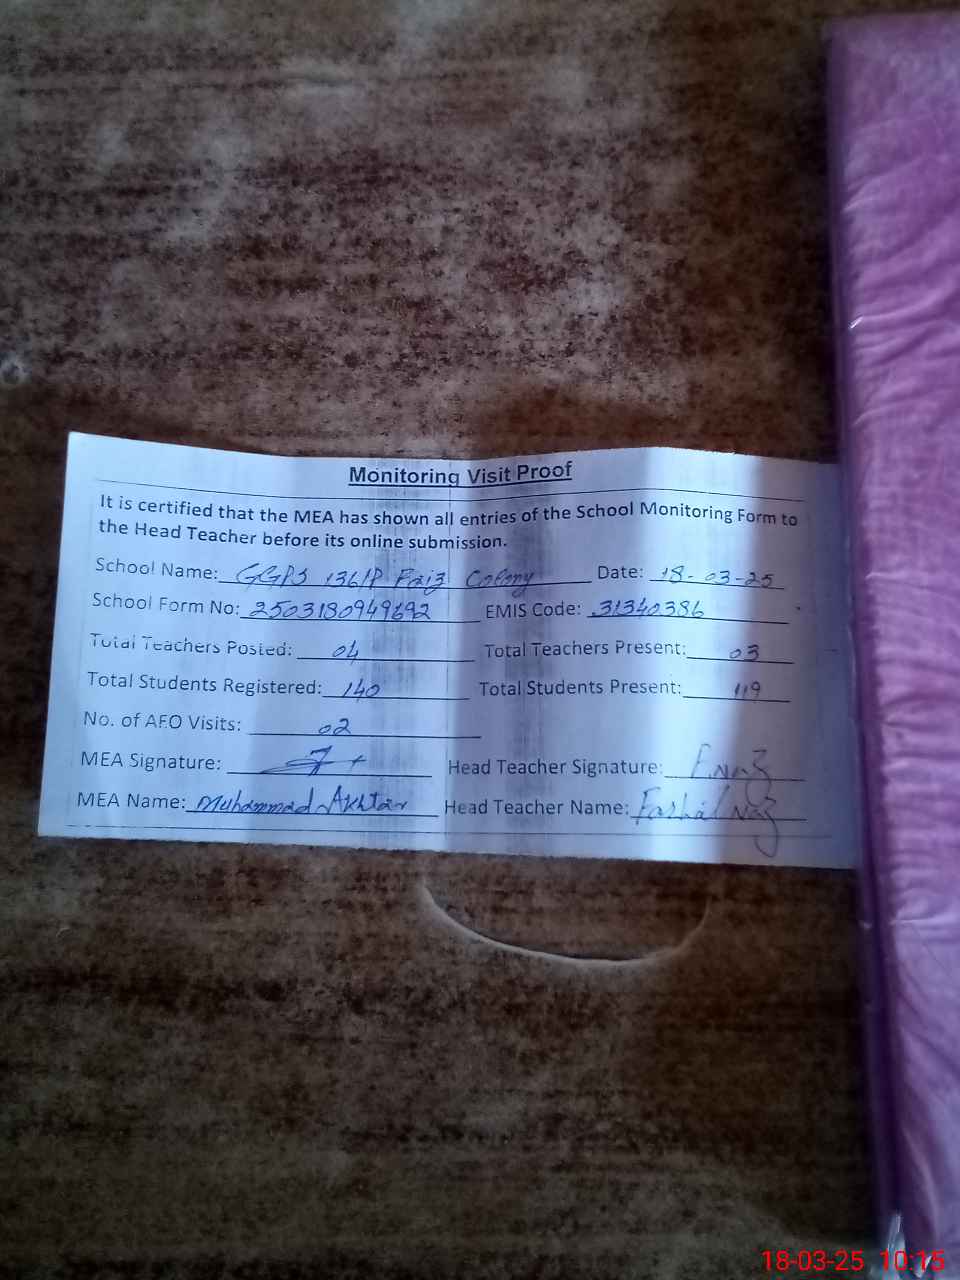 Monitoring Visit Proof
It is certified that the MEA has shown all entries of the School Monitoring Form to
the Head Teacher before its online submission.
School Name: GGPS 136/P Faiz Colony Date: 18-03-25
School Form No: 2503180949692 EMIS Code: 31340386
Total Teachers Posted: 04 Total Teachers Present: 03
Total Students Registered: 140 Total Students Present: 119
No. of AEO Visits: 02
MEA Signature: Head Teacher Signature: F.Naz
MEA Name: Muhammad Akhtar Head Teacher Name: Naz
18-03-25 10:15